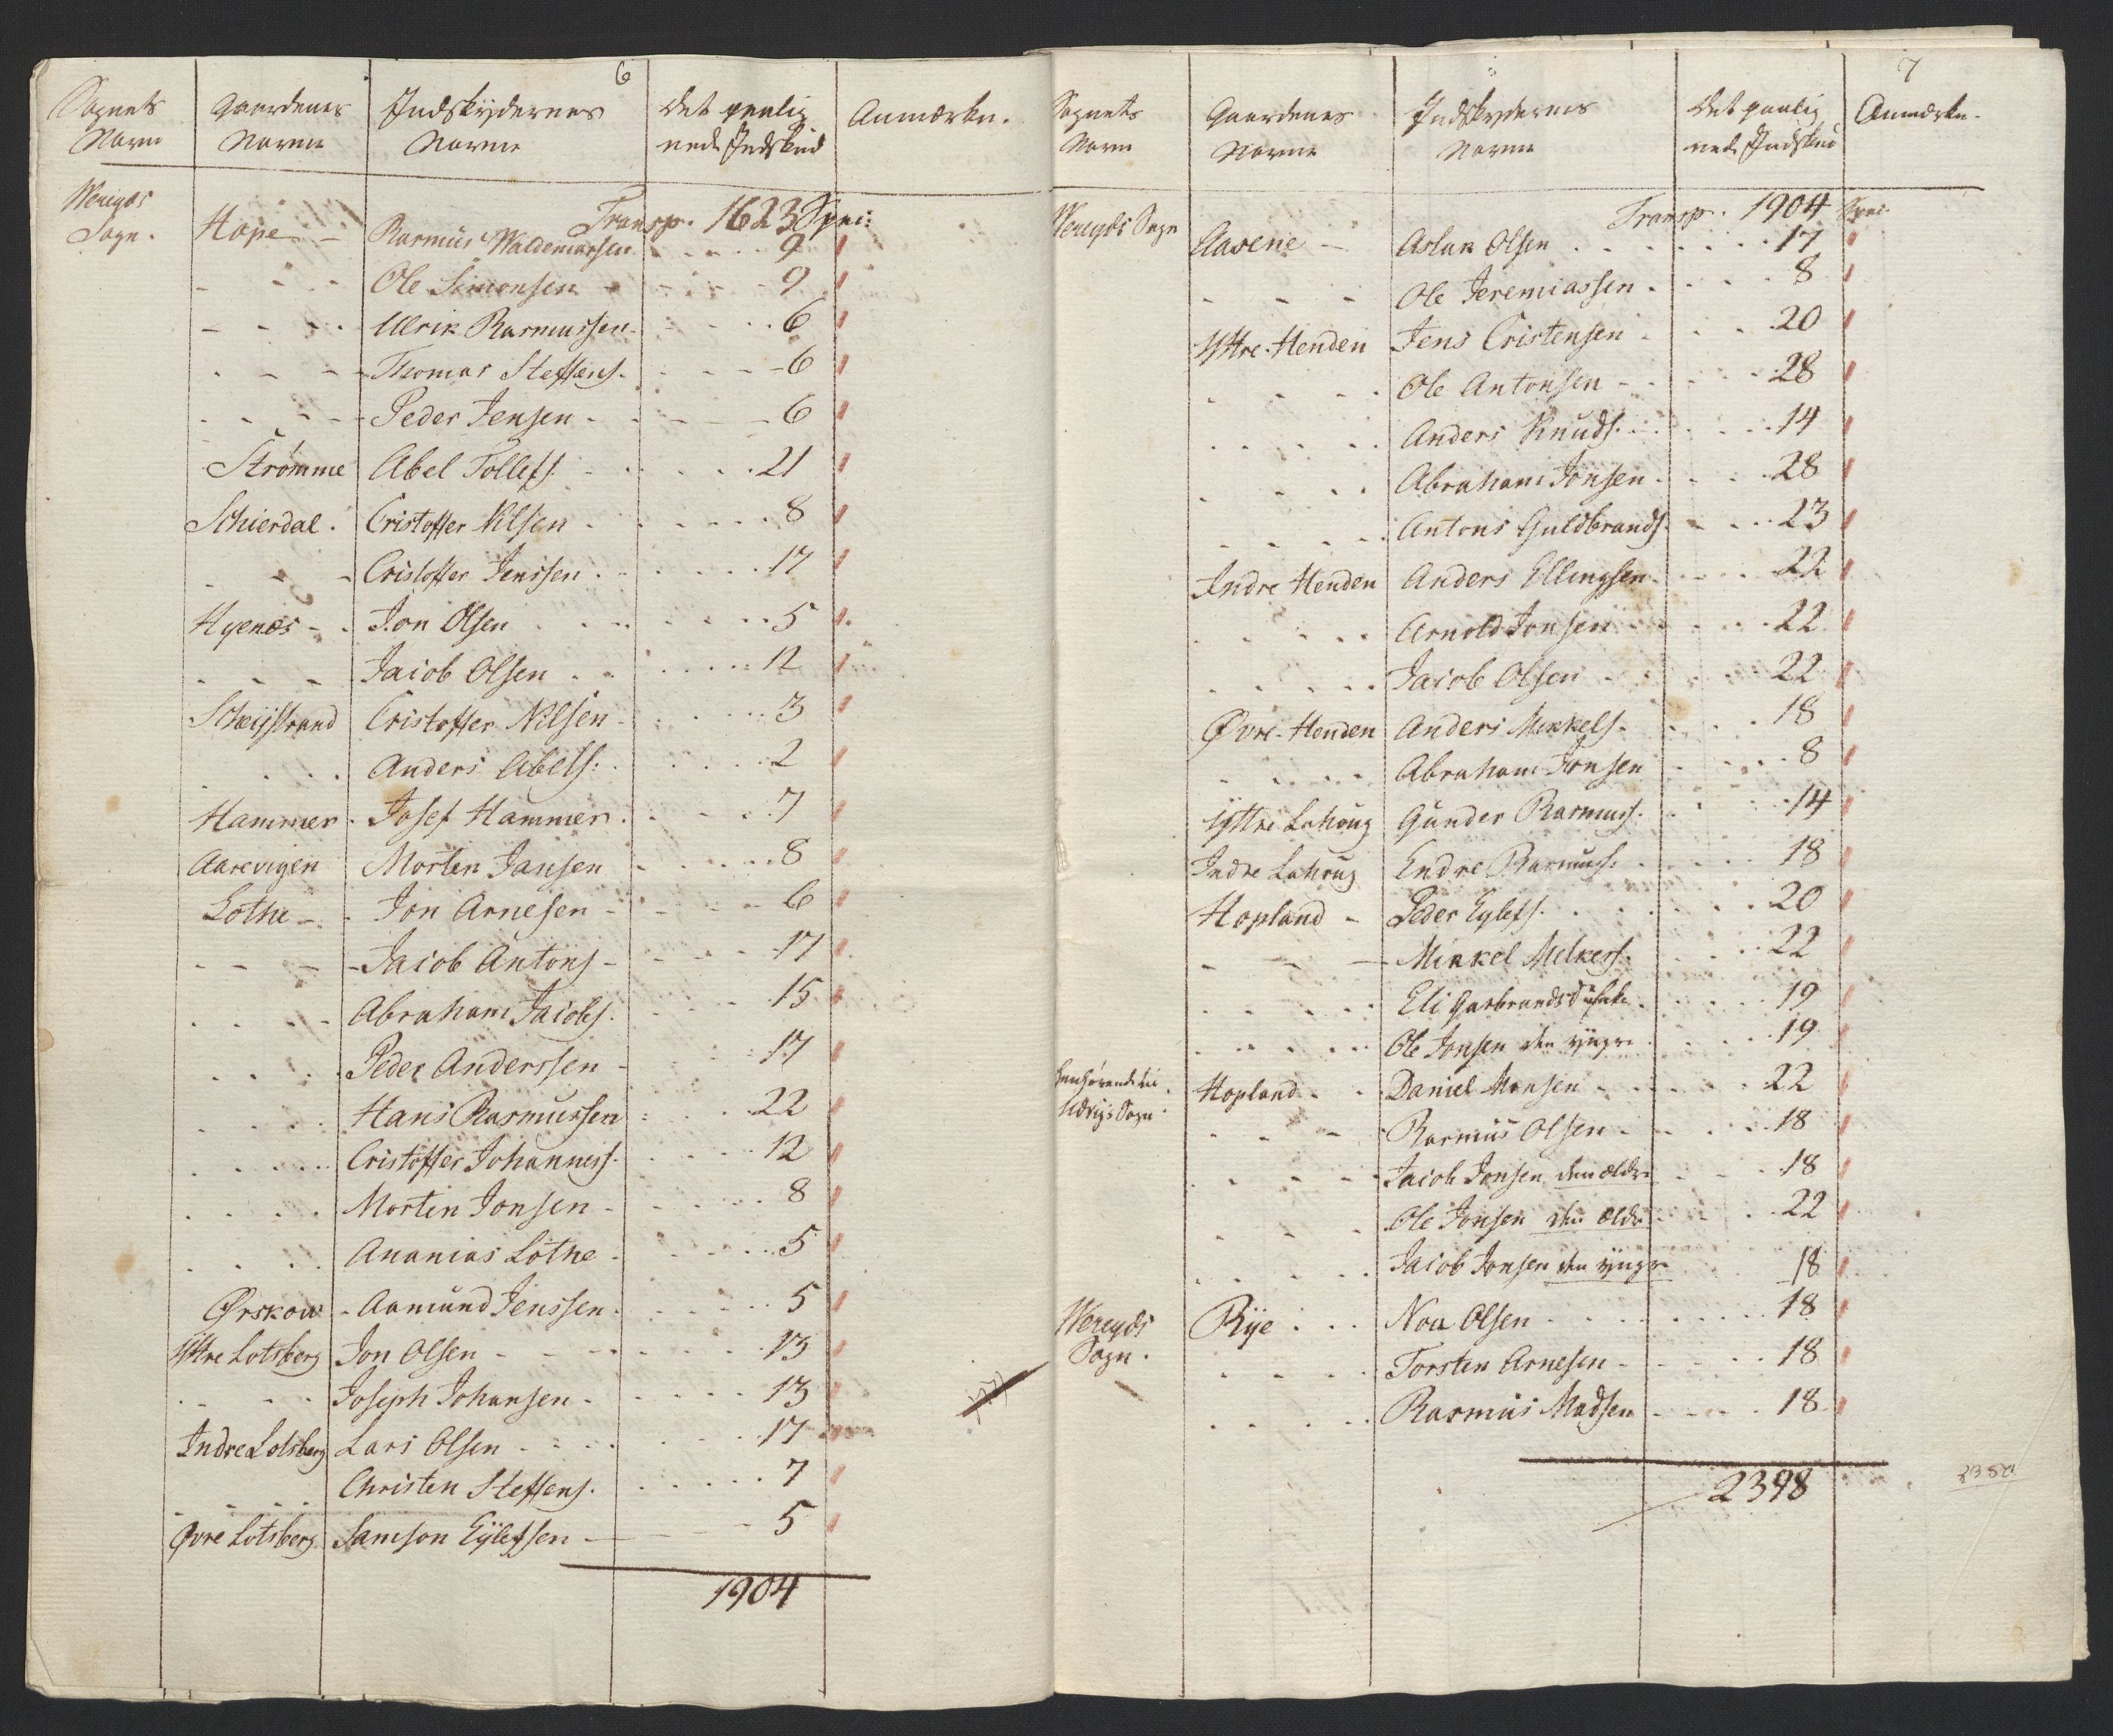 6
Sognets Gaardenes Indskÿdernes Det paalig Anmærkn.
Navn Navne Navne nede Indskud
Wereyds Transp. 1623 Spec:
Sogn. Hope - Rasmus Waldemarsen 9
Ole Simonsen 9
Ulrik Rasmussen 6
Thomas Steffens. 6
Peder Jensen 6
Strømme Abel Tollefs. 21
Schierdal. Cristoffer Nilsen 8
Cristoffer Jenssen 17
Hyenæs Jon Olsen 5
Jacob Olsen 12
Scheistrand Cristoffer Nilsen 3
Anders Abels: 2
Hammer Josef Hammer 7
Aarevigen Morten Jansen 8
Lothe Jon Arnesen 6
Jacob Antons 17
Abraham Jacobs. 15
Peder Anderssen 17
Hans Rasmussen 22
Cristoffer Johanness. 12
Morten Jonsen 8
Ananias Lothe 5
Ørskow Aamund Jenssen 5
Yttre Lotsberg Jon Olsen 13
Joseph Johansen 13
Indre Lotsberg Lars Olsen 17
Christen Steffens. 7
Øvre Lotsberg Samson Eÿlefsen 5
1904
7
Sognets Gaardenes Indskydernes Det paalig Anmærkn.
Navn Navne Navne nede Indskud
Transp. 1904 Spec.
Wereyds Sogn Aasene Aslak Olsen 17
Ole Jeremiassen 8
Yttre Henden Jens Cristensen 20
Ole Antonsen 28
Anders Knuds. 14
Abraham Jonsen 28
Antons Guldbrands. 23
Indre Henden Anders Ellingsen 22
Arnold Jonsen 22
Jacob Olsen 22
Øvre Henden Anders Mikkels. 18
Abraham Jonsen 8
Yttre Lahoug Gunder Rasmus. 14
Indre Lahoug Endre Rasmus. 18
Hopland Peder Eylefs. 20
Mikkel Melkers. 22
Eli Garbrandsd 19
Ole Jonsen den yngre 19
henhørende til Hopland Daniel Monsen 22
Udvigs Sogn. Rasmus Olsen 18
Jacob Jonsen den ældre 18
Ole Jonsen den ældre 22
Jacob Jonsen den yngre 18
Wereyds Rÿe Noa Olsen 18
Sogn. Torsten Arnesen 18
Rasmus Madsen 18
2398